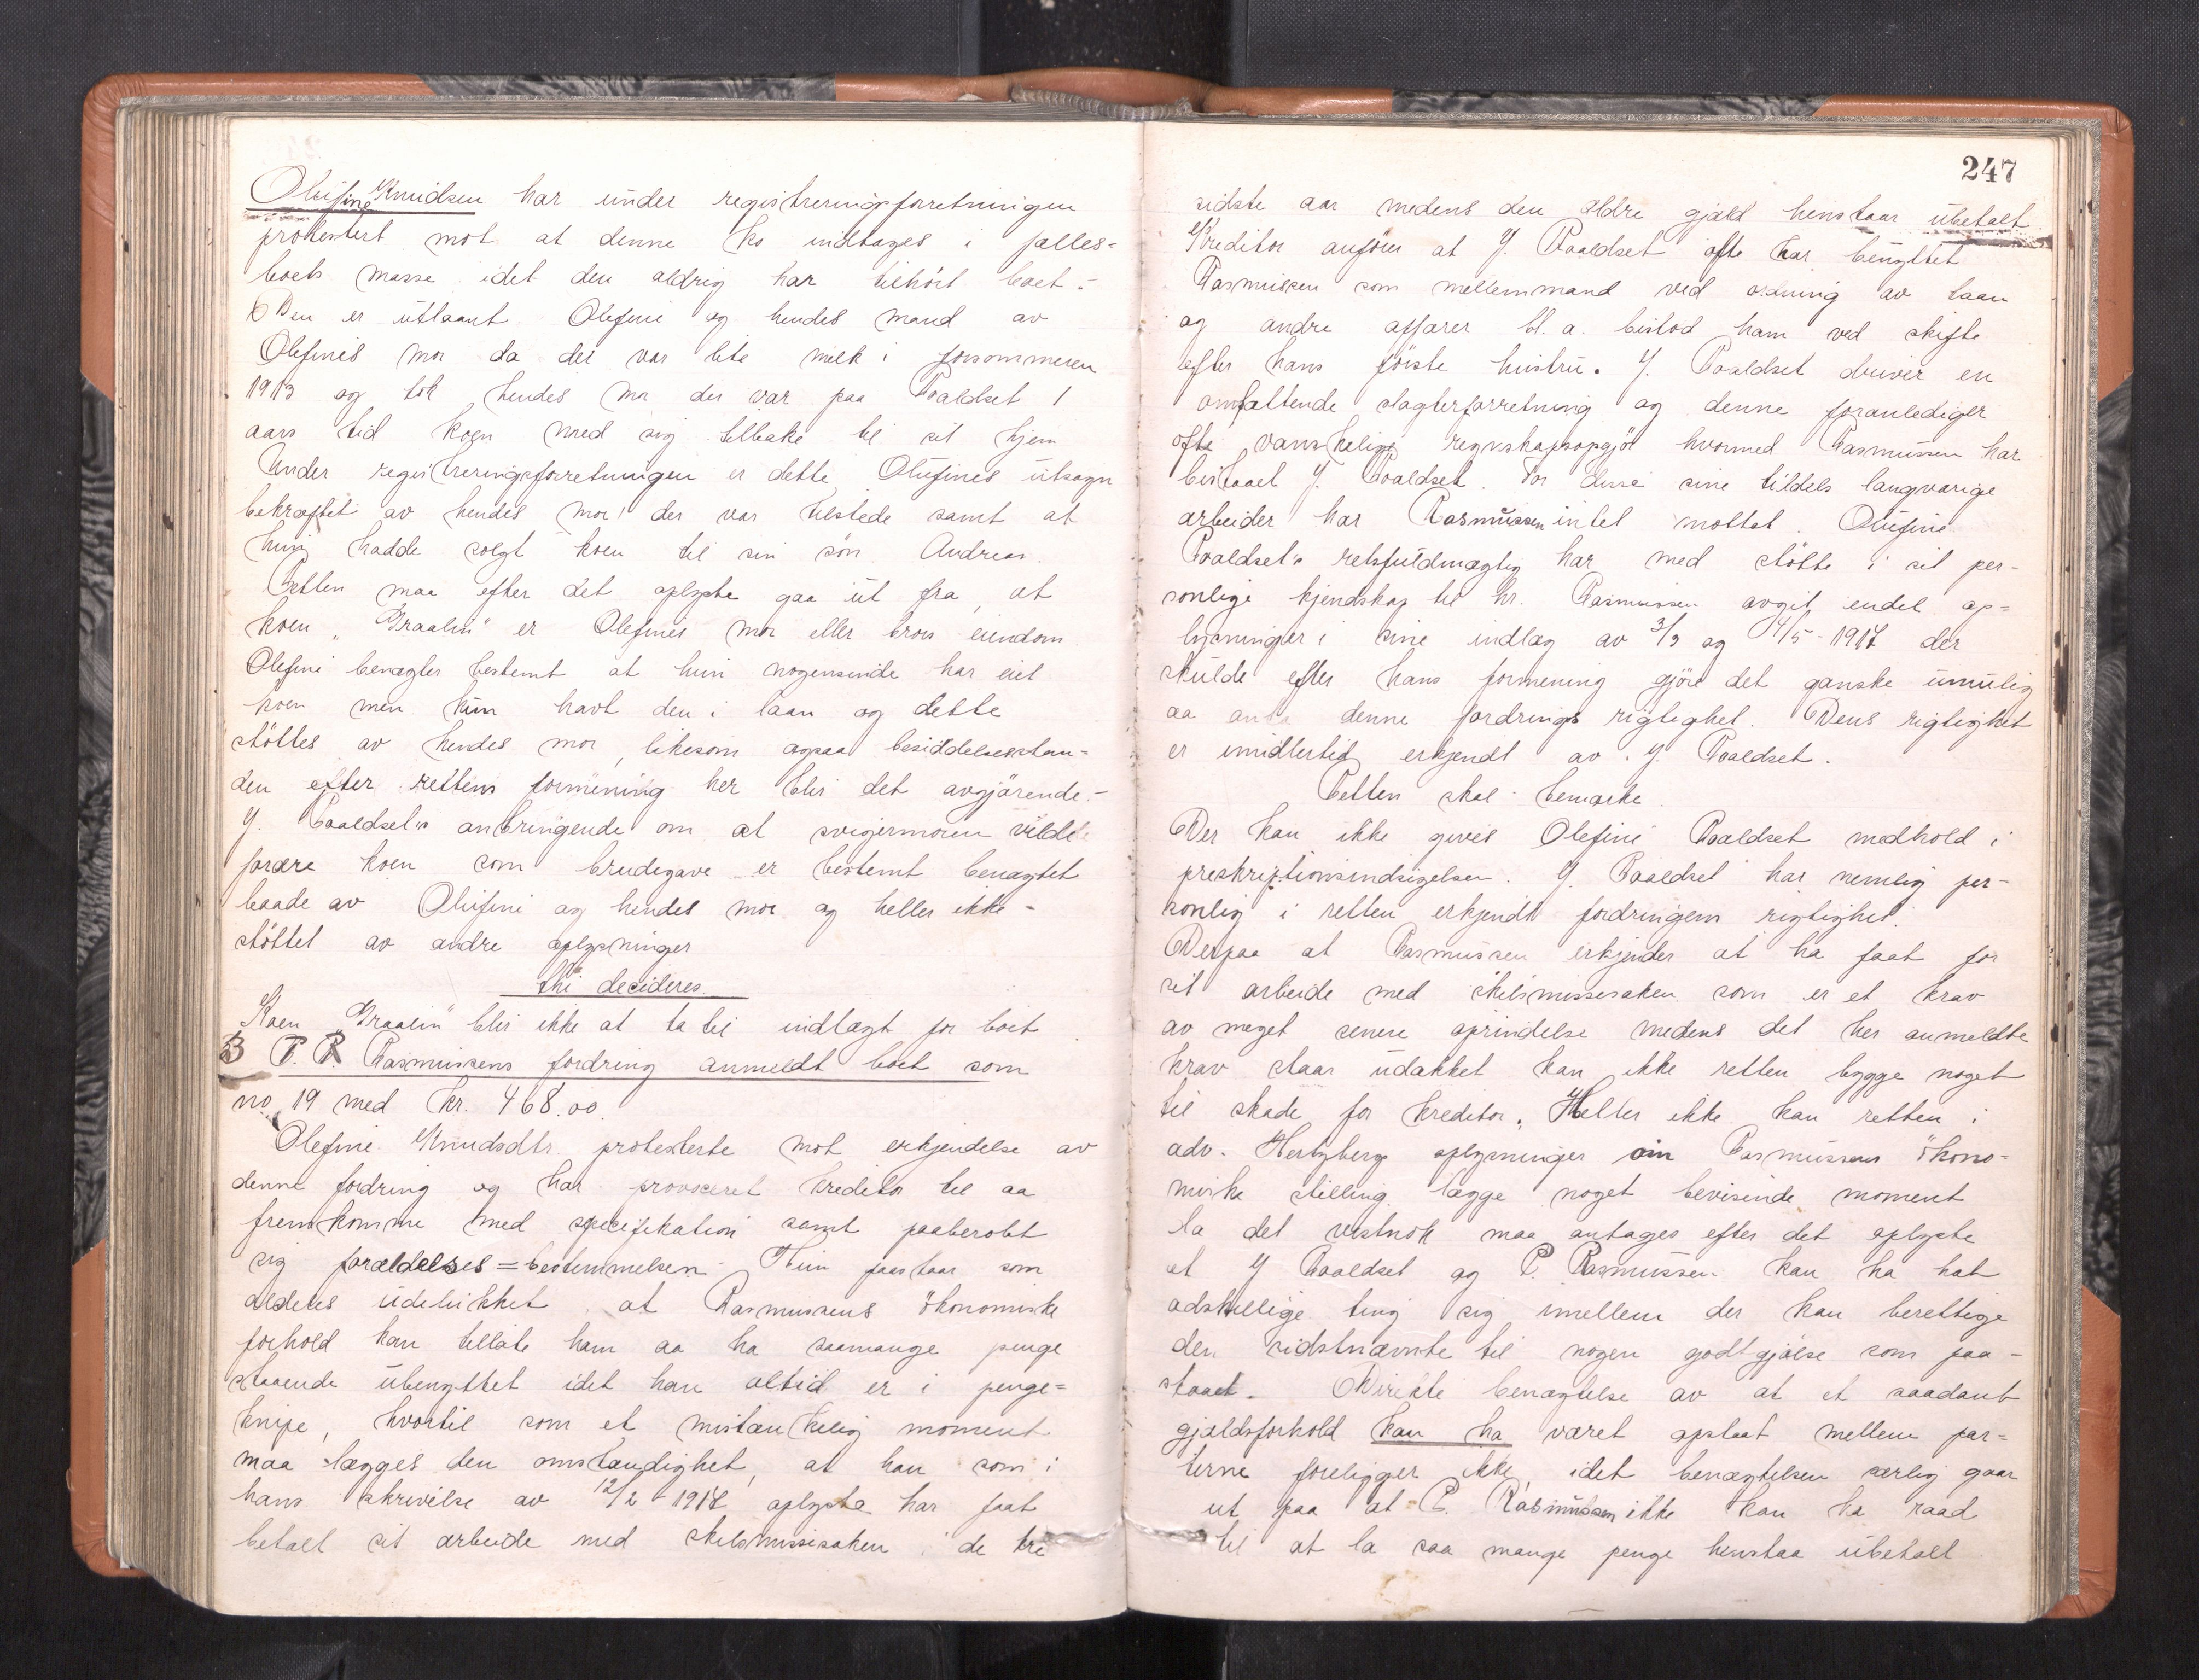 Olufine Knudsen har under registreringsforretningen
protestert mot at denne ko indtages i fælles=
boets masse idet den aldrig har tilhört boet.-
Den er utlaant Olefine og hendes mand av
Olefines mor da det var lite melk i forsommeren
1913 og tok hendes mor der var paa Paaldset 1
aars tid koen med sig tilbake til sit hjem
Under registreringsforretningen er dette Olufines utsagn
bekræftet av hendes mor der var tilstede samt at
hun hadde solgt koen til sin sön Andreas.
Retten maa efter det oplyste gaa ut fra, at
koen "Graalin" er Olefines mor eller brors eiendom
Olefine benægter bestemt at hun nogensinde har eiet
koen men kun havt den i laan og dette
støttes av hendes mor, likesom ogsaa besiddelsesstan=
den efter rettens formening her blir det avgjörende.-
J. Paaldset's anbringende om at svigermoren vilde
forære koen som brudegave er bestemt benægtet
baade av Olufine og hendes mor og heller ikke -
støttet av andre oplysninger
thi decideres.
Koen "Graalin" blir ikke at ta til indtægt for boet
B P. R. Rasmussens fordring anmeldt boet som
no 19 med kr. 468.00.
Olefine Knudsdtr. protesterte mot erkjendelse av
denne fordring og har provoceret kreditor til aa
fremkomme med specifikation samt paaberobt
sig forældelses=bestemmelsen. Hun paastaar som
aldeles udelukket at Rasmussens ökonomiske
forhold kan tillate ham aa ha saamange penge
staaende ubenyttet idet han altid er i penge=
knipe, hvortil som et mistænkelig moment
maa lægges den omstændighet, at han som i
hans skrivelse av 12/2 1917 oplyste har faat
betalt sit arbeide med skilsmissesaken i de tre
247
sidste aar medens den ældre gjæld henstaar ubetalt
Kreditor anförer at J. Paaldset ofte har benyttet
Rasmussen som mellemmand ved ordning av laan
og andre affærer bl. a. bistod ham ved skifte
efter hans förste hustru. J. Paaldset driver en
omfattende slagterforretning og denne foranlediger
ofte vanskelige regnskapsopgjör hvormed Rasmussen har
bistaaet J. Paaldset. For disse sine tildels langvarige
arbeider har Rasmussen intet mottat. Olufine
Paaldset's retsfuldmægtig har med stötte i sit per-
sonlige kjendskap til hr. Rasmussen avgit endel op=
lysninger i sine indlæg av 3/3 og 4/5-1917 der
skulde efter hans formening gjöre det ganske umulig
aa anta denne fordrings rigtighet. Dens rigtighet
er imidlertid erkjendt av J. Paaldset.
Retten skal bemærke
Der kan ikke gives Olefine Paaldset medhold i
preskriptionsindsigelsen. J. Paaldset har nemlig per-
sonlig i retten erkjendt fordringens rigtighet.
Derpaa at Rasmussen erkjender at ha faat for
sit arbeide med skilsmissesaken som er et krav
av meget senere oprindelse medens det her anmeldte
krav staar udækket kan ikke retten bygge noget
til skade for kreditor. Heller ikke kan retten i
adv. Hertzberg oplysninger om Rasmussens ökono-
miske stilling lægge noget bevisende moment
la det vistnok maa antages efter det oplyste
at J Paaldset og P. Rasmussen kan ha hat
adskillige ting sig imellem der kan berettige
den sidstnævnte til nogen godtgjörelse som paa-
staaet. Direkte benægtelse av at et saadant
gjældsforhold kan ha været opstaat mellem par=
terne foreligger ikke, idet benægtelsen særlig gaar
ut paa at P. Rasmussen ikke kan ha raad
til at la saa mange penge henstaa ubetalt